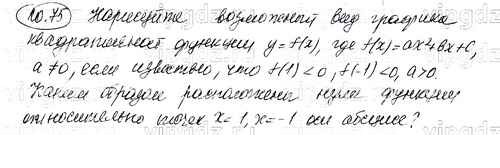 10.75 Нарисуйте возможный вид графика
квадратичной функции y = f(x), где f(x)=ax²+bx+c,
a≠0, если известно, что f(1)<0, f(-1)<0, a>0.
Каким образом расположены нули функции
относительно точек x=1, x=-1 оси абсцисс?